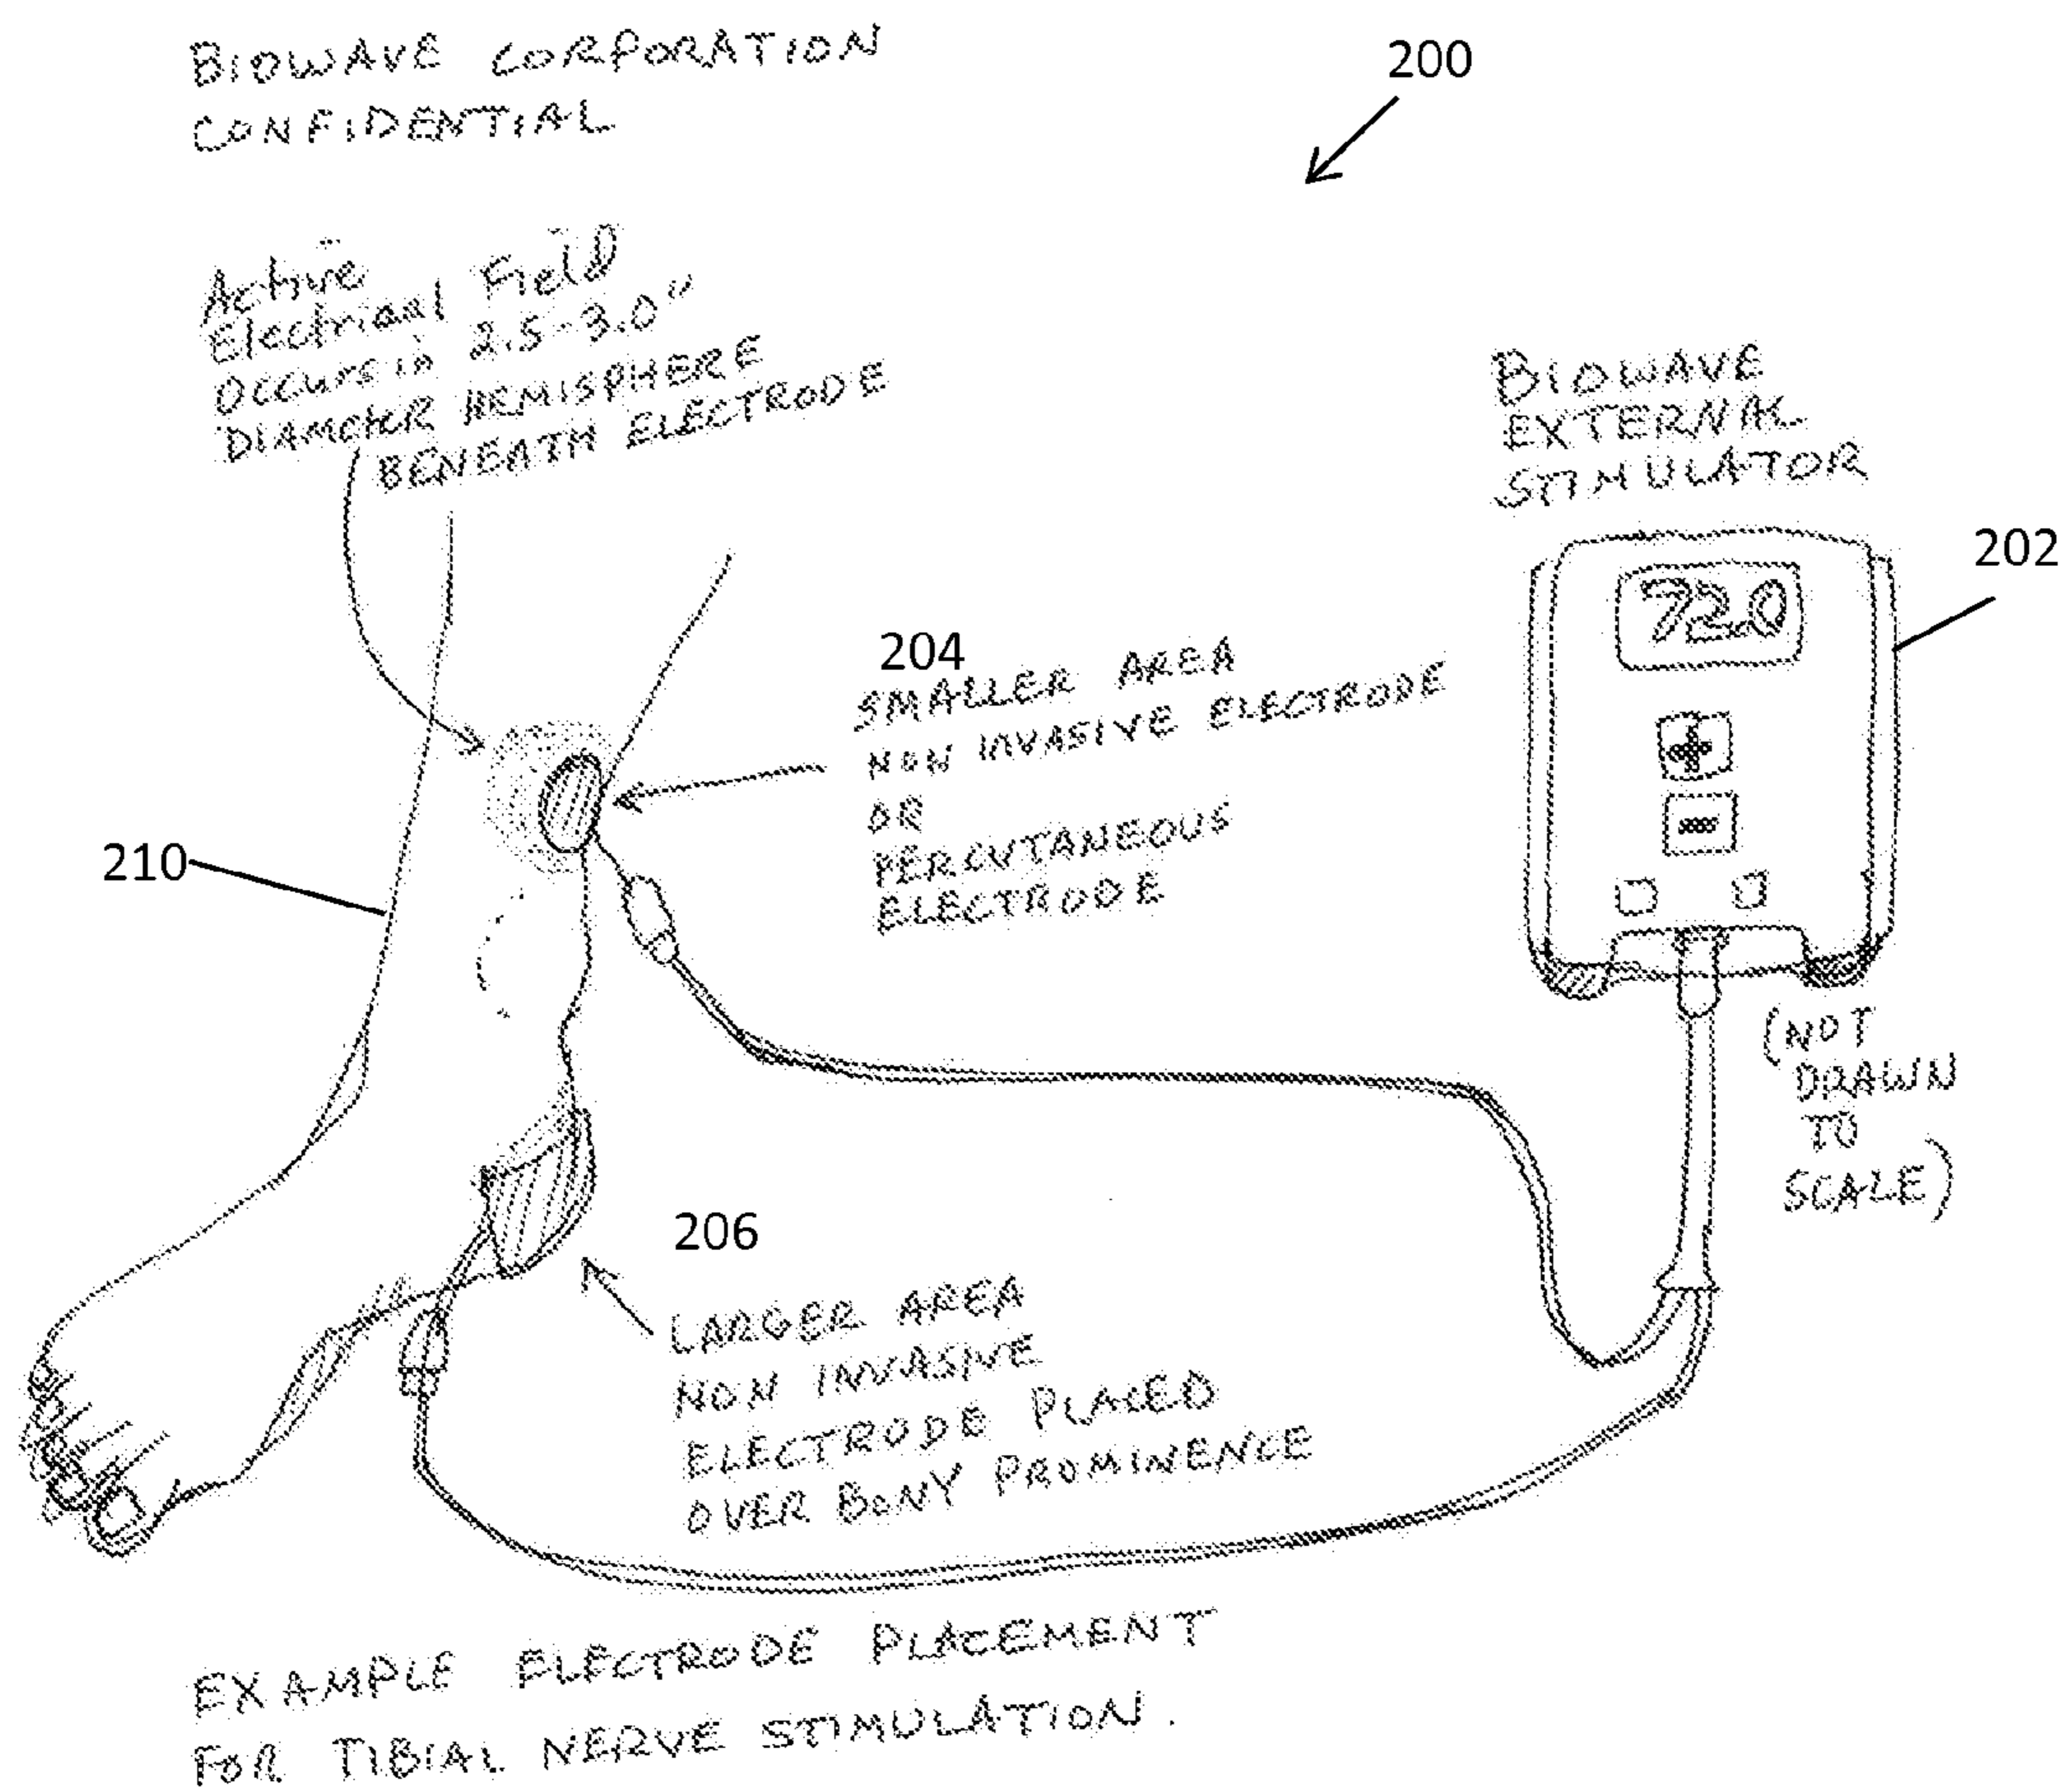 BIOWAVE CORPORATION
CONFIDENTIAL
200
Active
Electrical Field
Occurs in 2.5-3.0"
DIAMETER HEMISPHERE
BENEATH ELECTRODE
BIOWAVE
EXTERNAL
STIMULATOR
202
72.0
+
-
204
SMALLER AREA
NON INVASIVE ELECTRODE
OR
PERCUTANEOUS
ELECTRODE
210
(NOT
DRAWN
TO
SCALE)
206
LARGER AREA
NON INVASIVE
ELECTRODE PLACED
OVER BONY PROMINENCE
EXAMPLE ELECTRODE PLACEMENT
FOR TIBIAL NERVE STIMULATION.